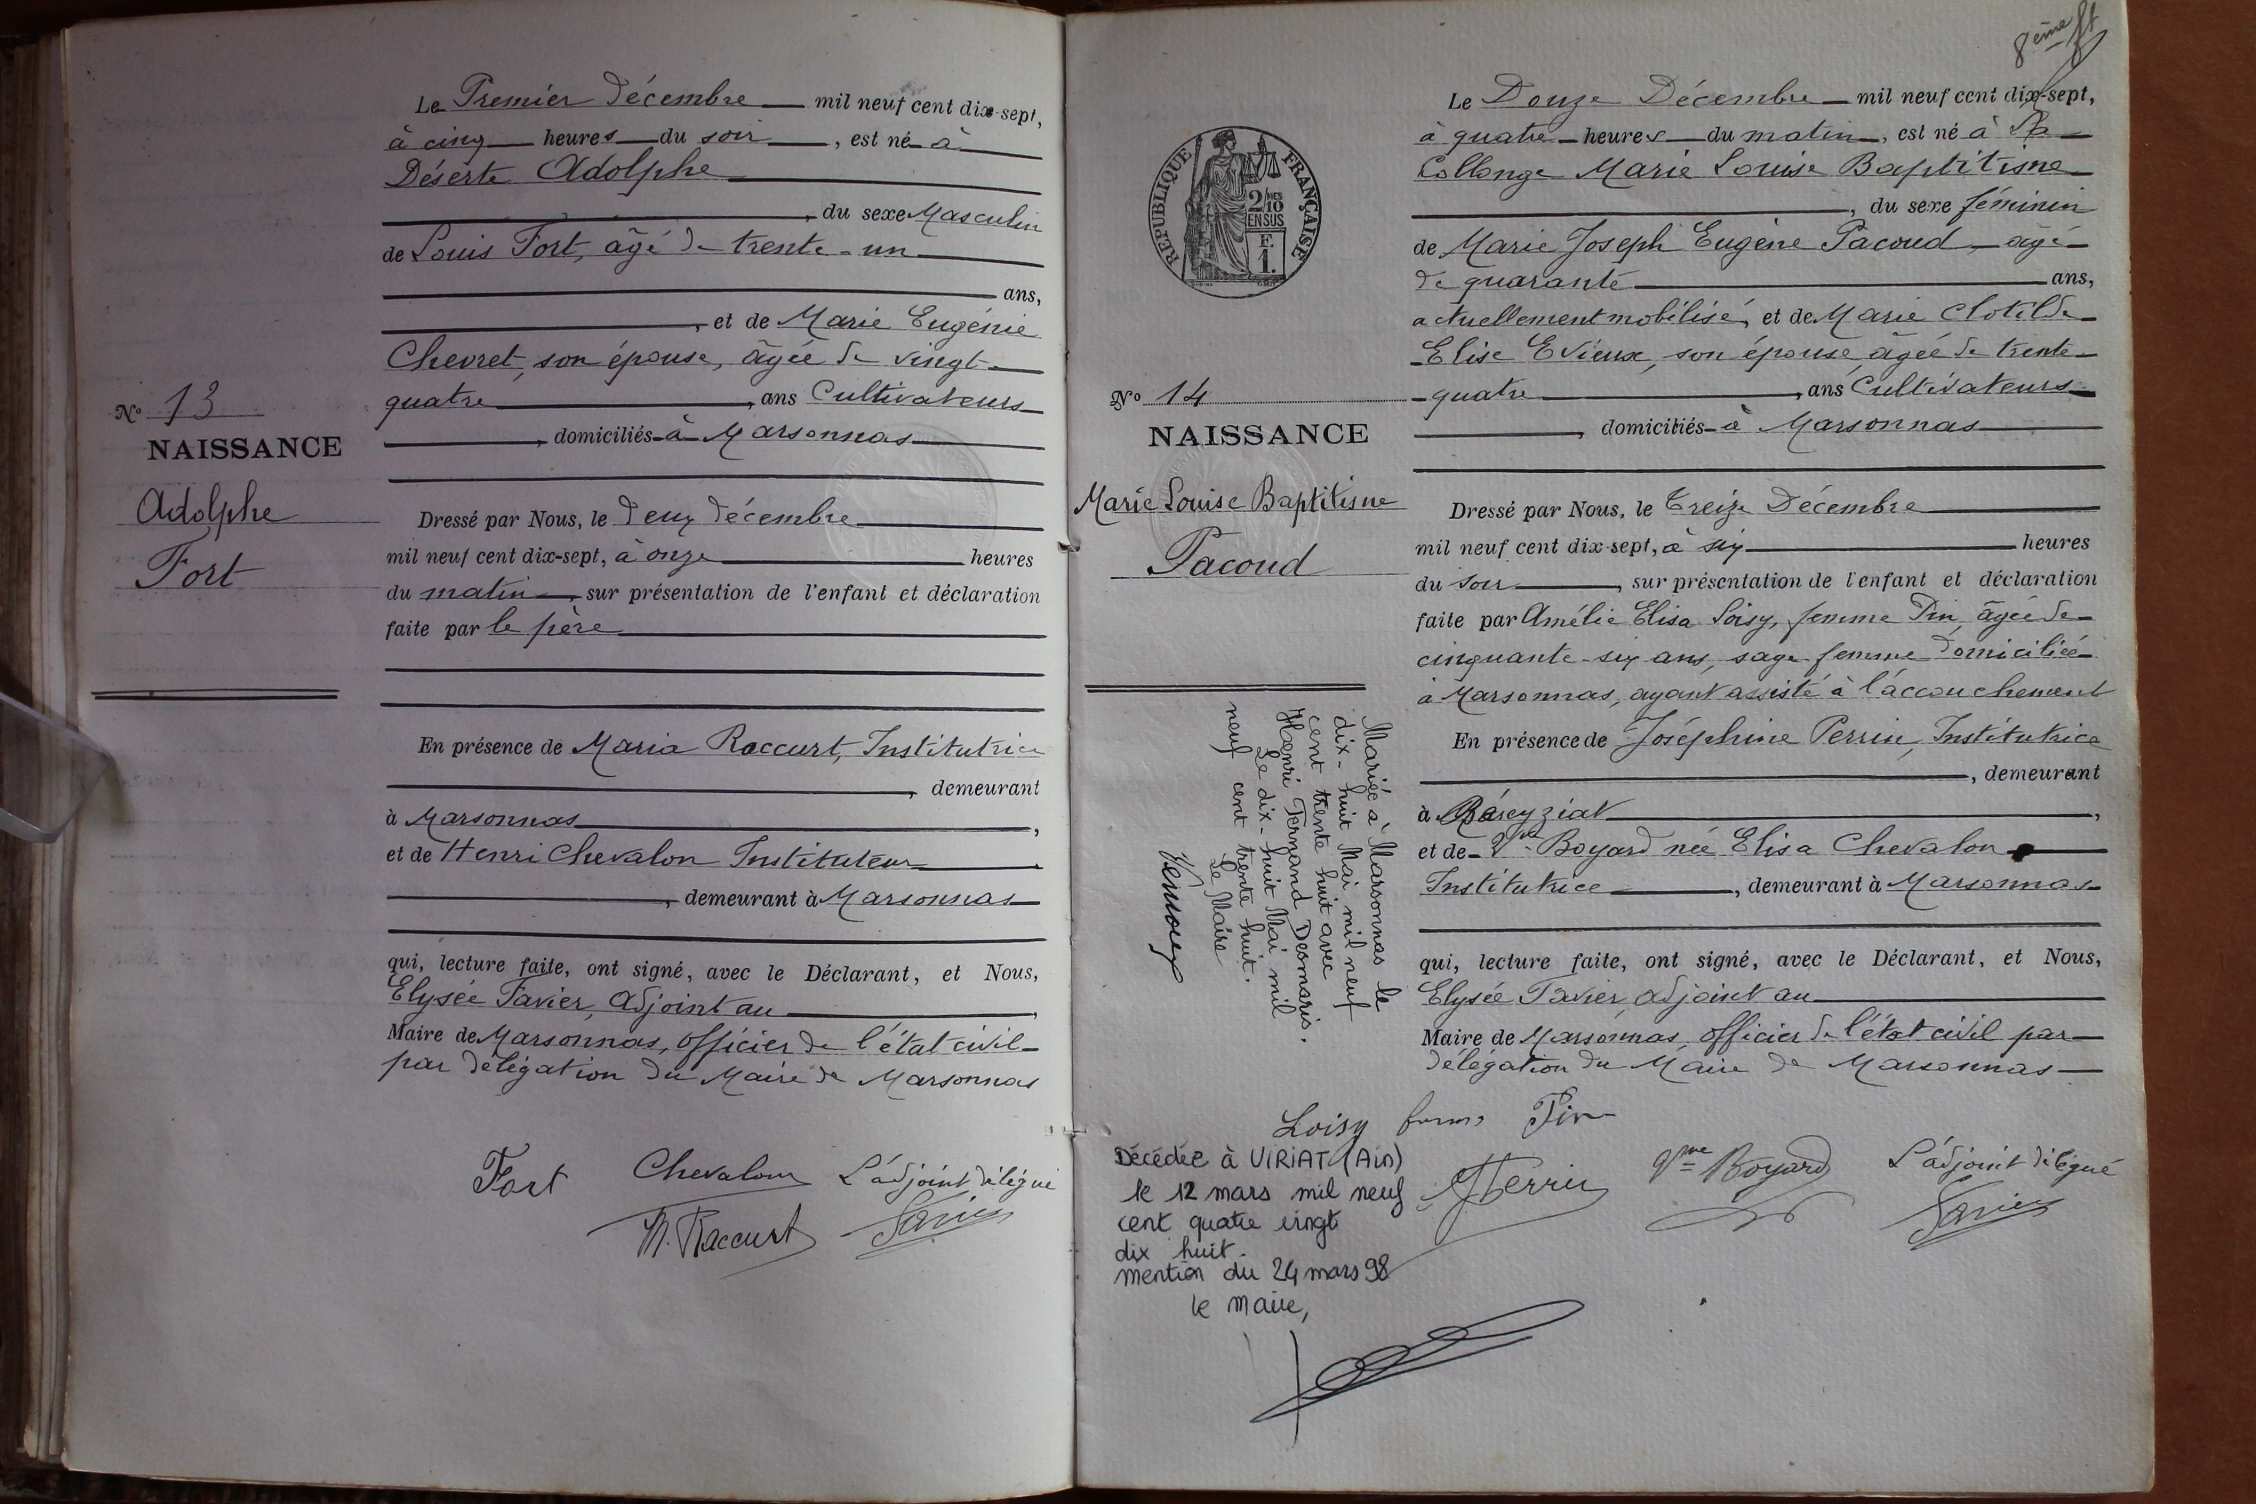 Le Premier Décembre mil neuf cent dix-sept,
à cinq heures du soir, est né à
Déserte Adolphe
, du sexe Masculin
de Louis Fort, âgé de trente-un
ans,
, et de Marie Eugénie
Chevret, son épouse, âgée de vingt-
quatre, ans Cultivateurs
, domiciliés à Marsonnas
Nº 13
NAISSANCE
Adolphe
Fort
Dressé par Nous, le deux décembre
mil neuf cent dix-sept, à onze heures
du matin, sur présentation de l'enfant et déclaration
faite par le père
En présence de Maria Raccurt, Institutrice
, demeurant
à Marsonnas,
et de Henri Chevalon Instituteur
, demeurant à Marsonnas
qui, lecture faite, ont signé, avec le Déclarant, et Nous,
Elysée Favier, adjoint au,
Maire de Marsonnas, officier de l'état civil
par délégation du Maire de Marsonnas
Fort Chevalon L'adjoint délégué
M. Raccurt Favier
8ème ft
Le Douze Décembre mil neuf cent dix-sept,
à quatre heures du matin, est né à La
Collonge Marie Louise Baptitisne
, du sexe féminin
de Marie Joseph Eugène Pacoud, âgé
de quarante ans,
actuellement mobilisé, et de Marie Clotilde
Elise Evieux, son épouse, âgée de trente-
quatre, ans Cultivateurs
, domiciliés à Marsonnas
REPUBLIQUE FRANÇAISE
2/10 MES
EN SUS
F.
1.
Nº 14
NAISSANCE
Marie Louise Baptitisne
Pacoud
Dressé par Nous, le Treize Décembre
mil neuf cent dix-sept, à six heures
du soir, sur présentation de l'enfant et déclaration
faite par Amélie Elisa Loisy, femme Pin, âgée de
cinquante-six ans, sage-femme domiciliée
à Marsonnas, ayant assisté à l'accouchement
En présence de Joséphine Perrin, Institutrice
, demeurant
à Béreyziat,
et de Vve Boyard née Elisa Chevalon
Institutrice, demeurant à Marsonnas
qui, lecture faite, ont signé, avec le Déclarant, et Nous,
Elysée Favier, adjoint au
Maire de Marsonnas, officier de l'état civil par
délégation du Maire de Marsonnas
Mariée à Marsonnas le
dix-huit Mai mil neuf
cent trente huit avec
Henri Fernand Desmaris.
Le dix-huit Mai mil
neuf cent trente huit.
Le Maire
Loisy femme Pin
JPerrin Vve Boyard L'adjoint délégué
Favier
Décédée à VIRIAT (Ain)
le 12 mars mil neuf
cent quatre vingt
dix huit.
mention du 24 mars 98
le maire,